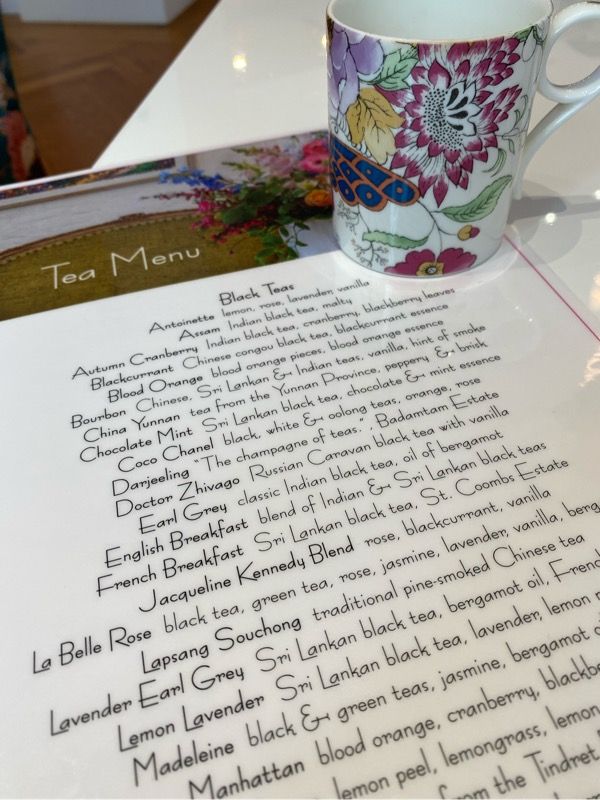 Tea Menu
Black Teas
Antoinette lemon, rose, lavender, vanilla
Assam Indian black tea, malty
Autumn Cranberry Indian black tea, cranberry, blackberry leaves
Blackcurrant Chinese congou black tea, blackcurrant essence
Blood Orange blood orange pieces, blood orange essence
Bourbon Chinese, Sri Lankan & Indian teas, vanilla, hint of smoke
China Yunnan tea from the Yunnan Province, peppery & brisk
Chocolate Mint Sri Lankan black tea, chocolate & mint essence
Coco Chanel black, white & oolong teas, orange, rose
Darjeeling "The champagne of teas." Badamtam Estate
Doctor Zhivago Russian Caravan black tea with vanilla
Earl Grey classic Indian black tea, oil of bergamot
English Breakfast blend of Indian & Sri Lankan black teas
French Breakfast Sri Lankan black tea, St. Coombs Estate
Jacqueline Kennedy Blend rose, blackcurrant, vanilla
La Belle Rose black tea, green tea, rose, jasmine, lavender, vanilla, berg
Lapsang Souchong traditional pine-smoked Chinese tea
Lavender Earl Grey Sri Lankan black tea, bergamot oil, French
Lemon Lavender Sri Lankan black tea, lavender, lemon
Madeleine black & green teas, jasmine, bergamot
Manhattan blood orange, cranberry,
lemon peel, lemongrass, lemon
from the Tindret